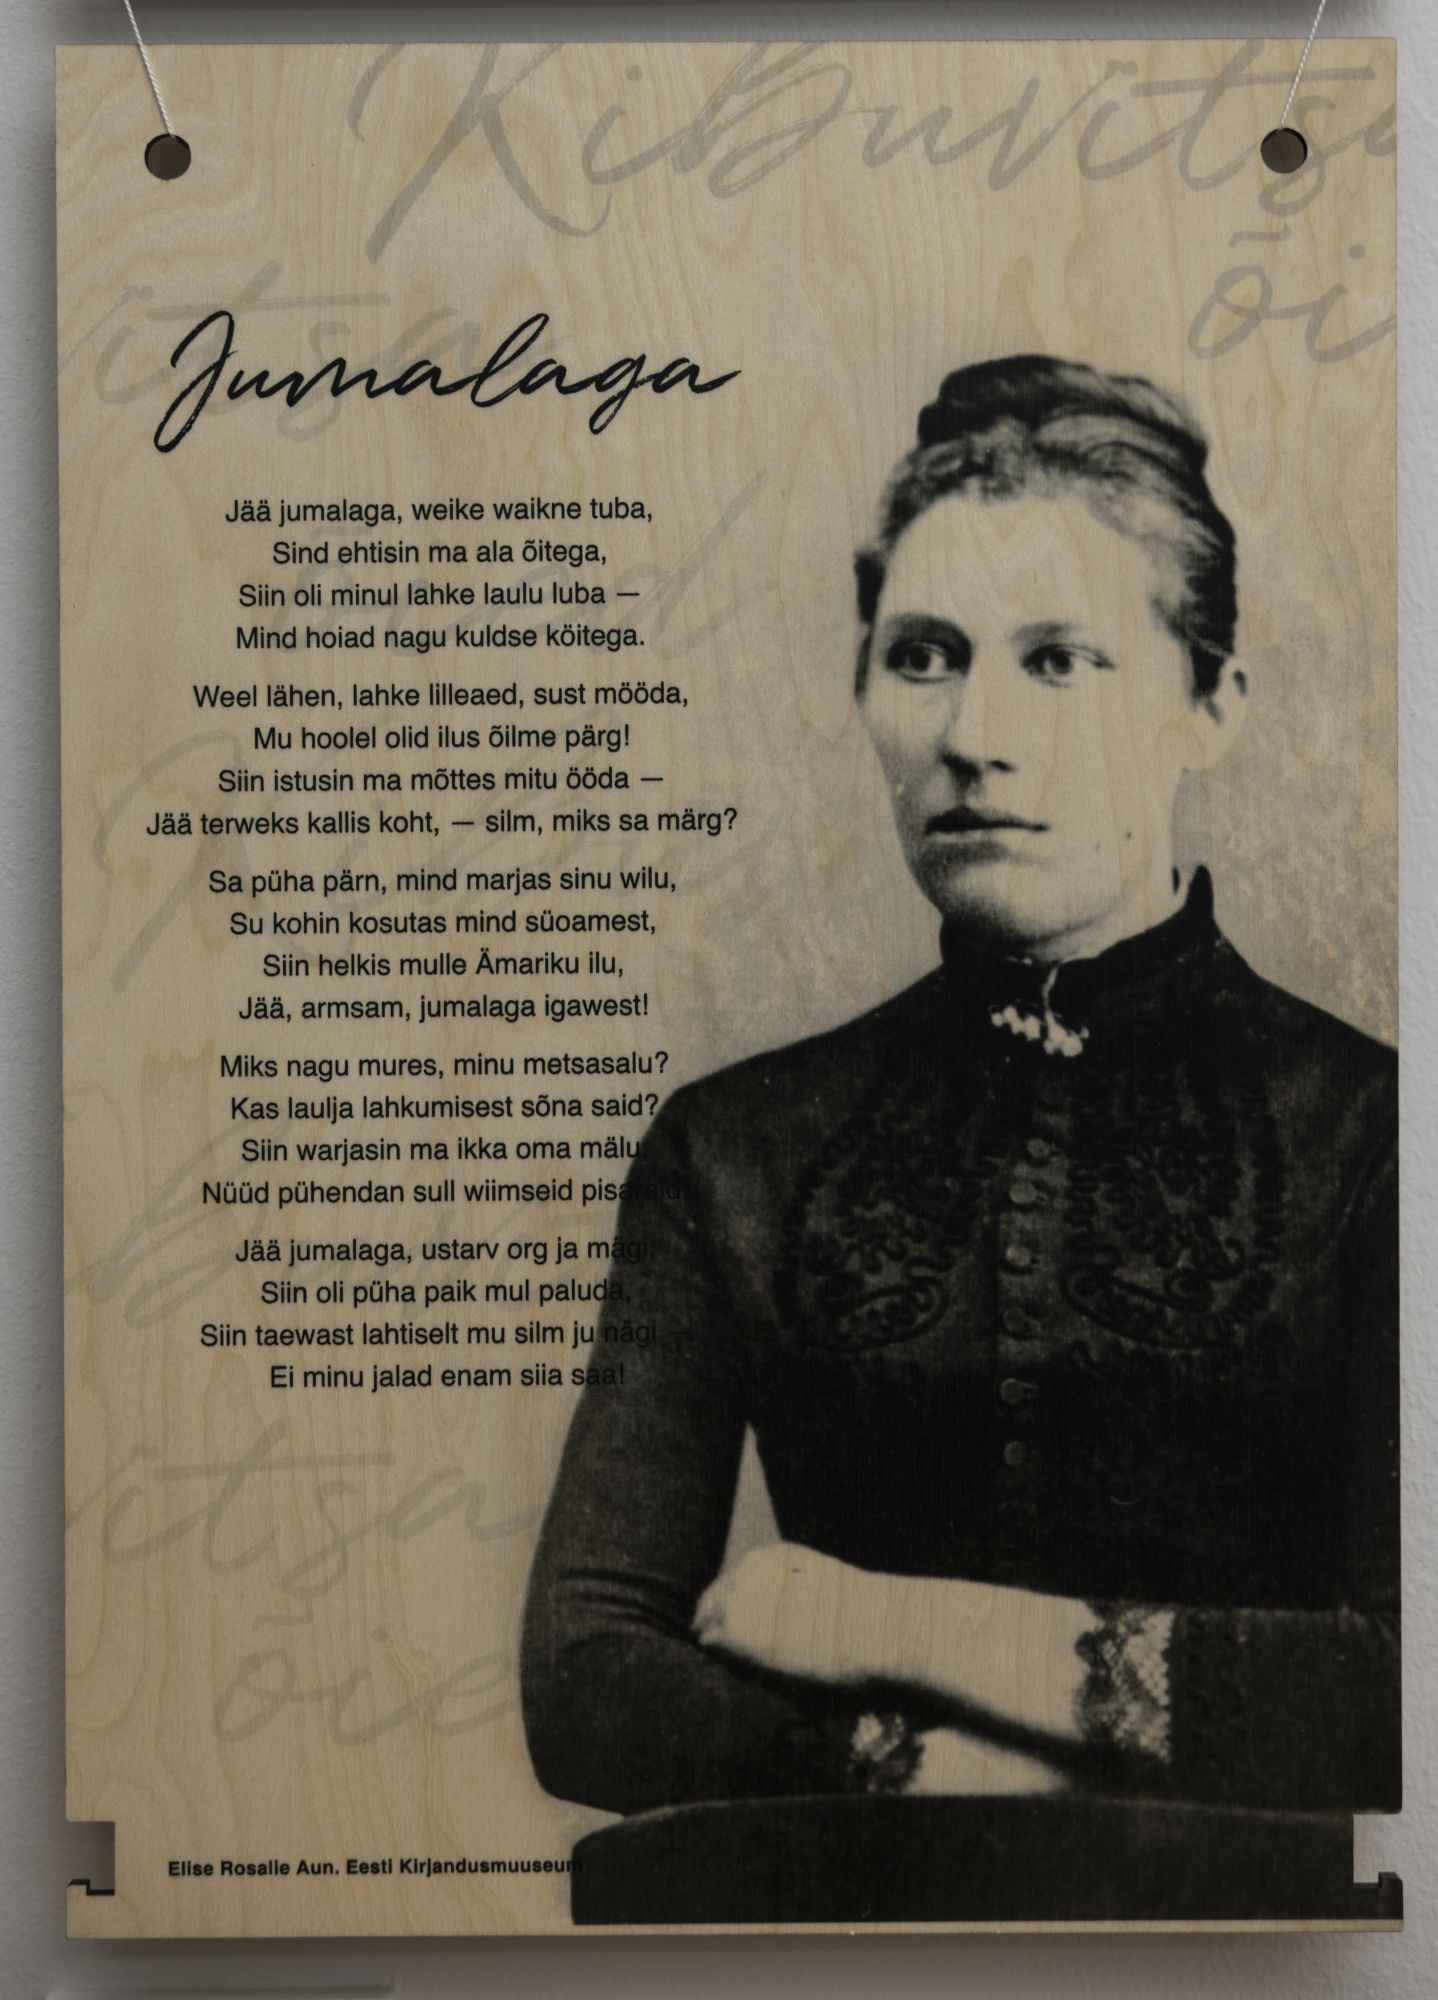 Kibuvitsa
õi
itsa
Jumalaga
Jää jumalaga, weike waikne tuba,
Sind ehtisin ma ala õitega,
Siin oli minul lahke laulu luba —
Mind hoiad nagu kuldse köitega.
Weel lähen, lahke lilleaed, sust mööda,
Mu hoolel olid ilus õilme pärg!
Siin istusin ma mõttes mitu ööda —
Jää terweks kallis koht, — silm, miks sa märg?
Sa püha pärn, mind marjas sinu wilu,
Su kohin kosutas mind süoamest,
Siin helkis mulle Ämariku ilu,
Jää, armsam, jumalaga igawest!
Miks nagu mures, minu metsasalu?
Kas laulja lahkumisest sõna said?
Siin warjasin ma ikka oma mälu,
Nüüd pühendan sull wiimseid pisaraid.
Jää jumalaga, ustarv org ja mägi,
Siin oli püha paik mul paluda,
Siin taewast lahtiselt mu silm ju nägi —
Ei minu jalad enam siia saa!
itsa
õie
Elise Rosalie Aun. Eesti Kirjandusmuuseum